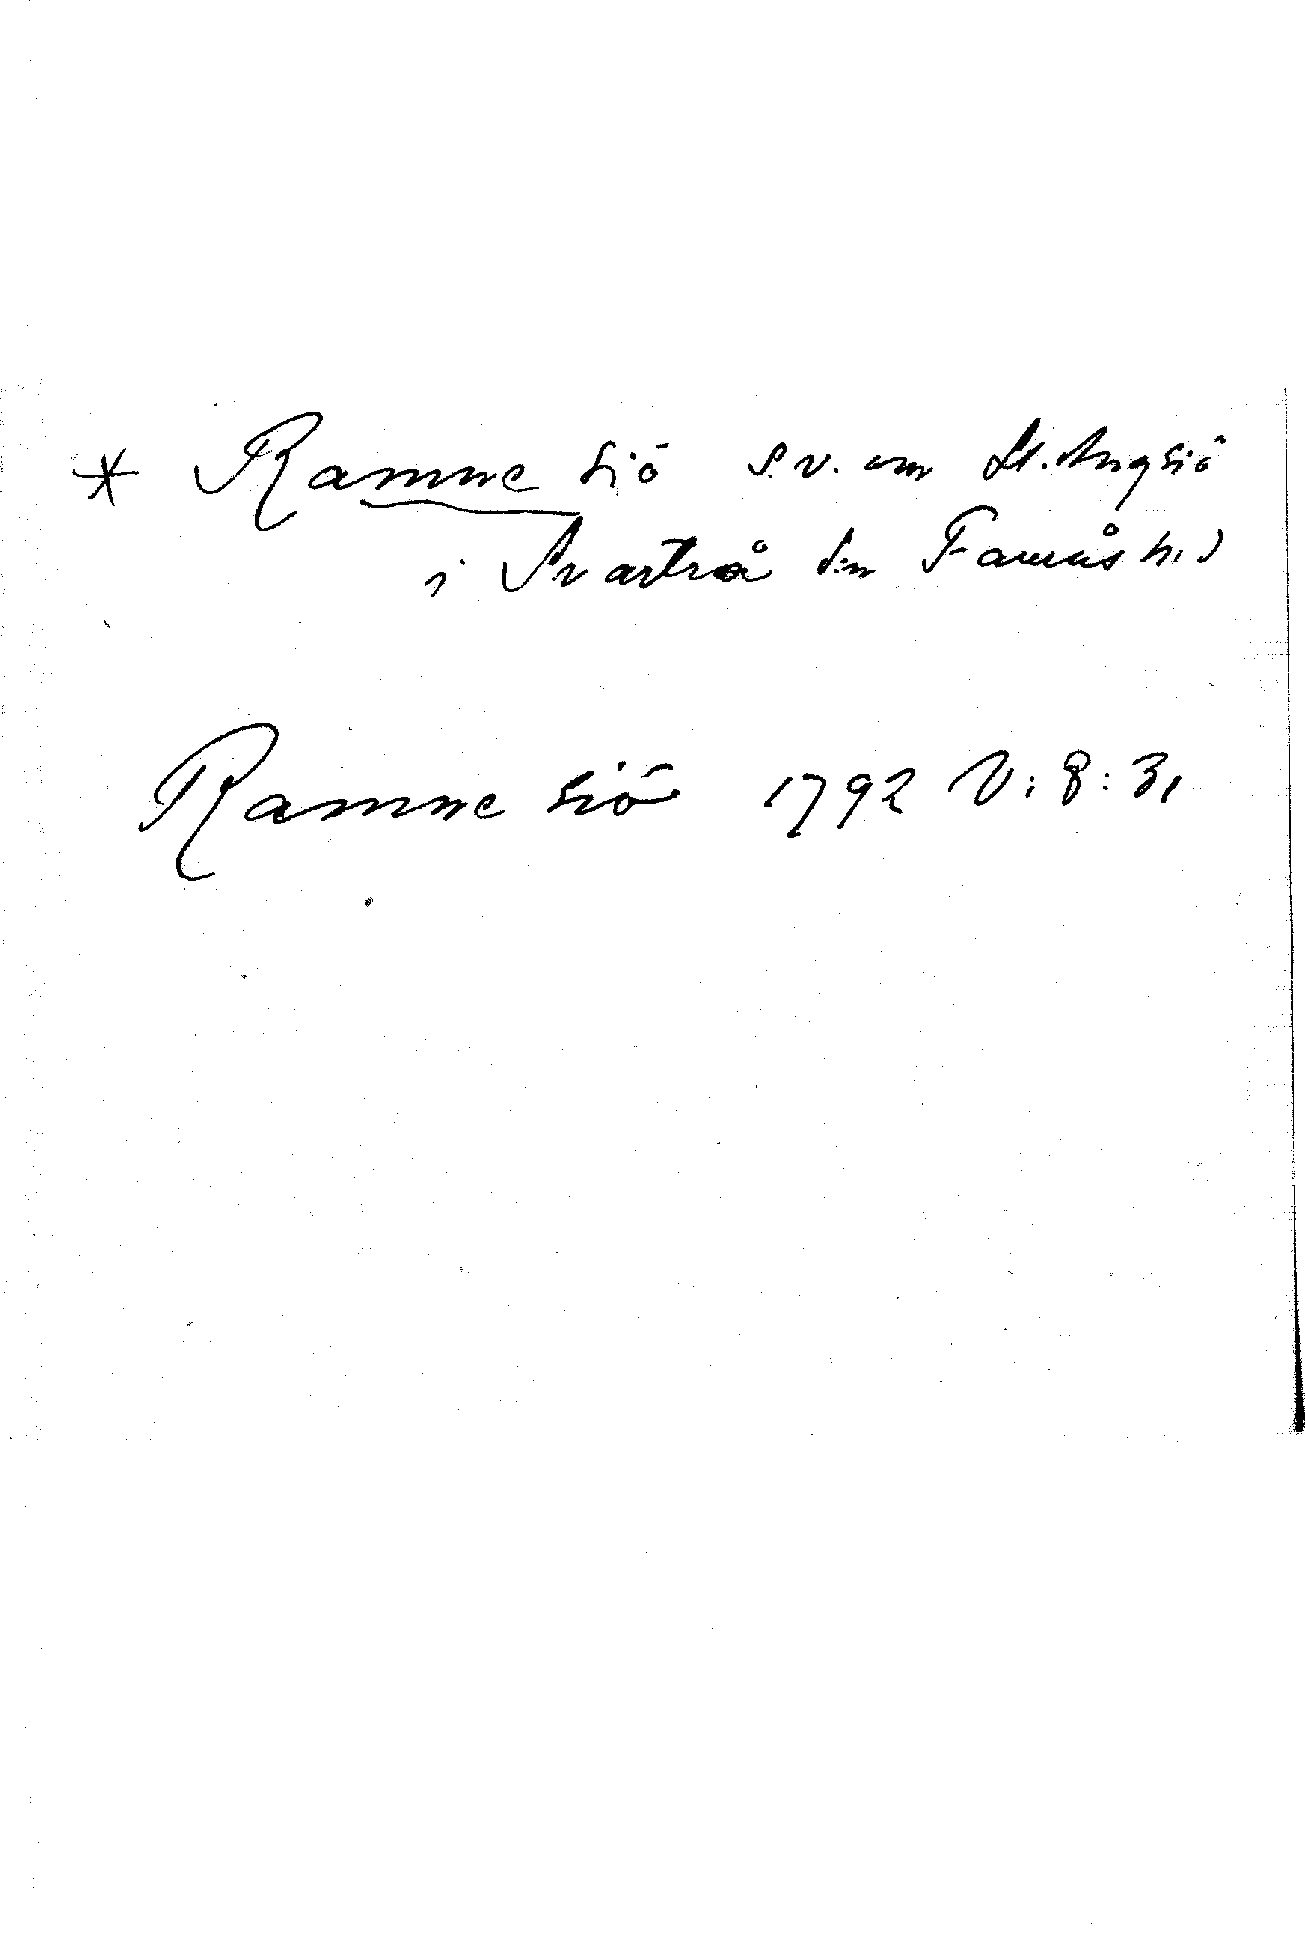 * Ramne siö s.v. om St. Angsiö
i Svartrå sn Faurås hd
Ramne siö 1792 V:8:31